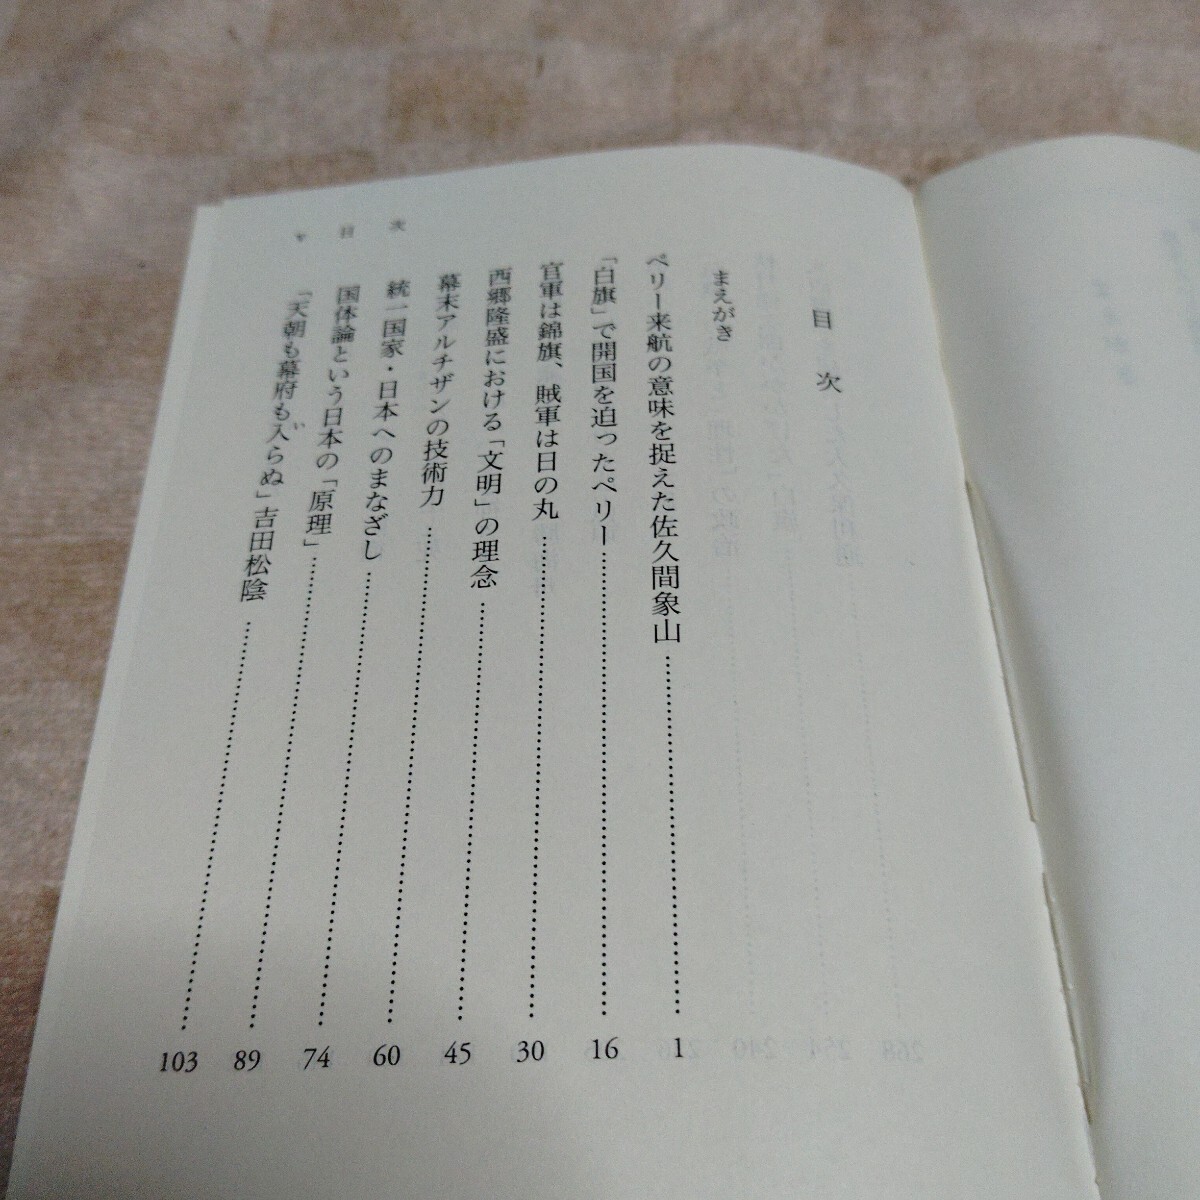 目次
まえがき
ペリー来航の意味を捉えた佐久間象山……1
「白旗」で開国を迫ったペリー……16
官軍は錦旗、賊軍は日の丸……30
西郷隆盛における「文明」の理念……45
幕末アルチザンの技術力……60
統一国家・日本へのまなざし……74
国体論という日本の「原理」……89
「天朝も幕府も入らぬ」吉田松陰……103
い
目次